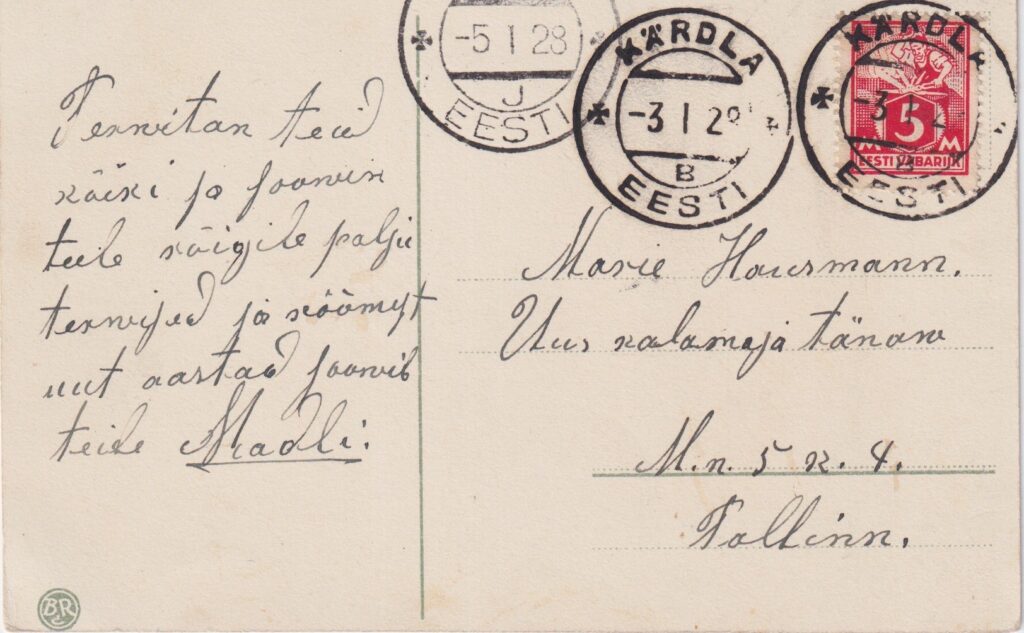 -5 I 28
J
EESTI
KÄRDLA
-3 I 28
B
EESTI
KÄRDLA
-3 I 2
B
EESTI
3
M M
EESTI VABARIIK
Terwitan teid
kõiki ja soowin
teile kõigile palju
terwised ja rõõmsyt
uut aastad soowib
teile Madli.
Marie Hausmann.
Uus kalamaja tänaw
M.n. 5 k. 4.
Tallinn.
BR